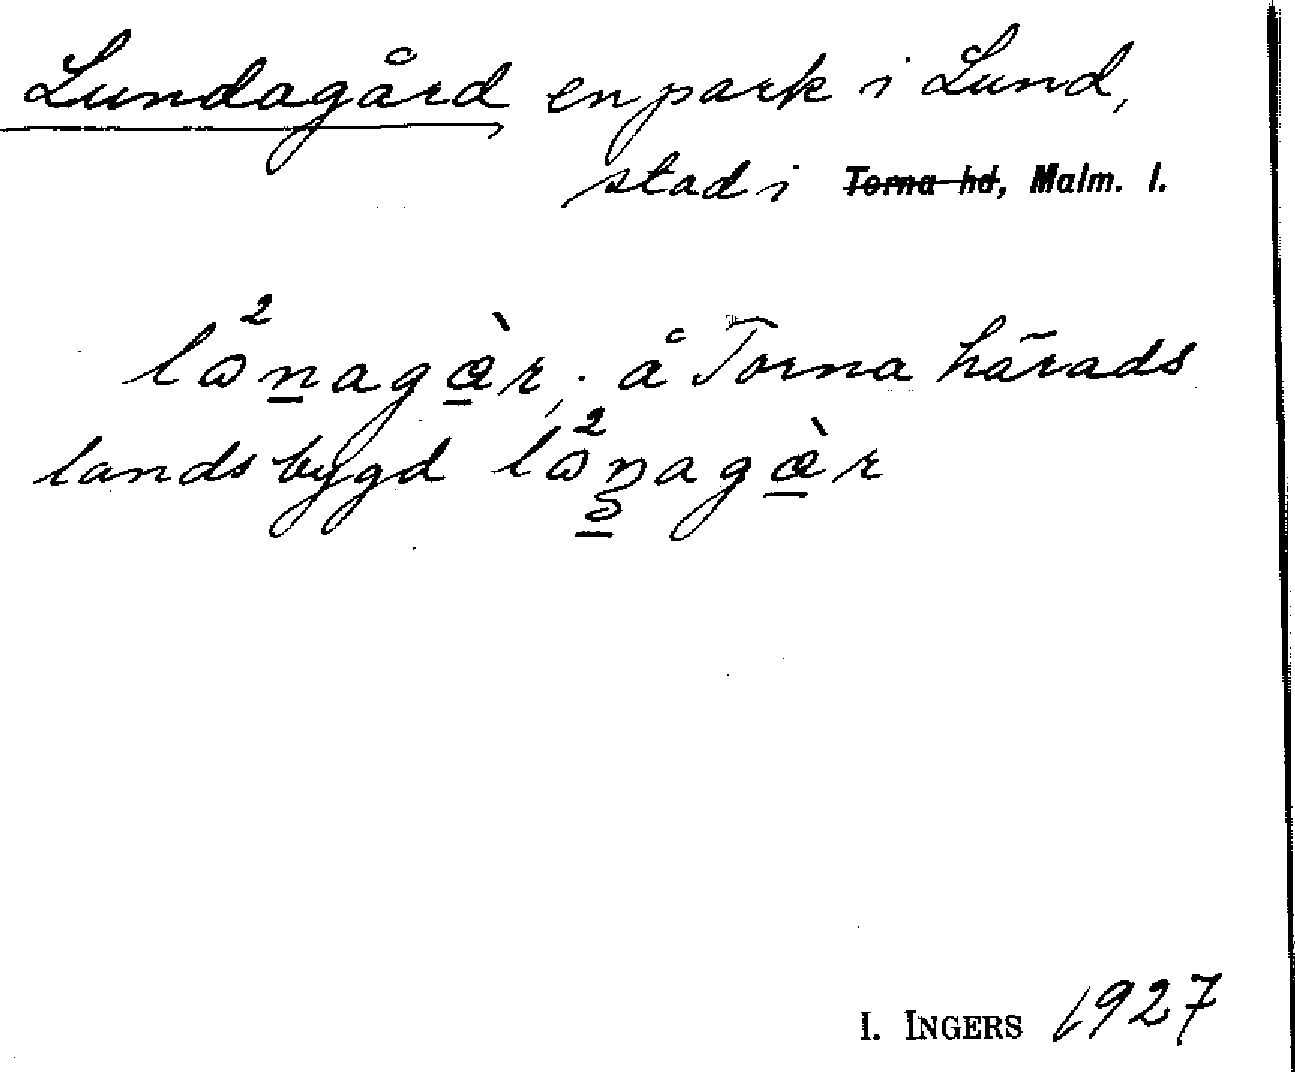 Lundagård en park i Lund,
stad i Torna hd, Malm. l.
lω²nagæ̀r, å Torna härads
landsbygd lω²nagæ̀r
I. INGERS 1927